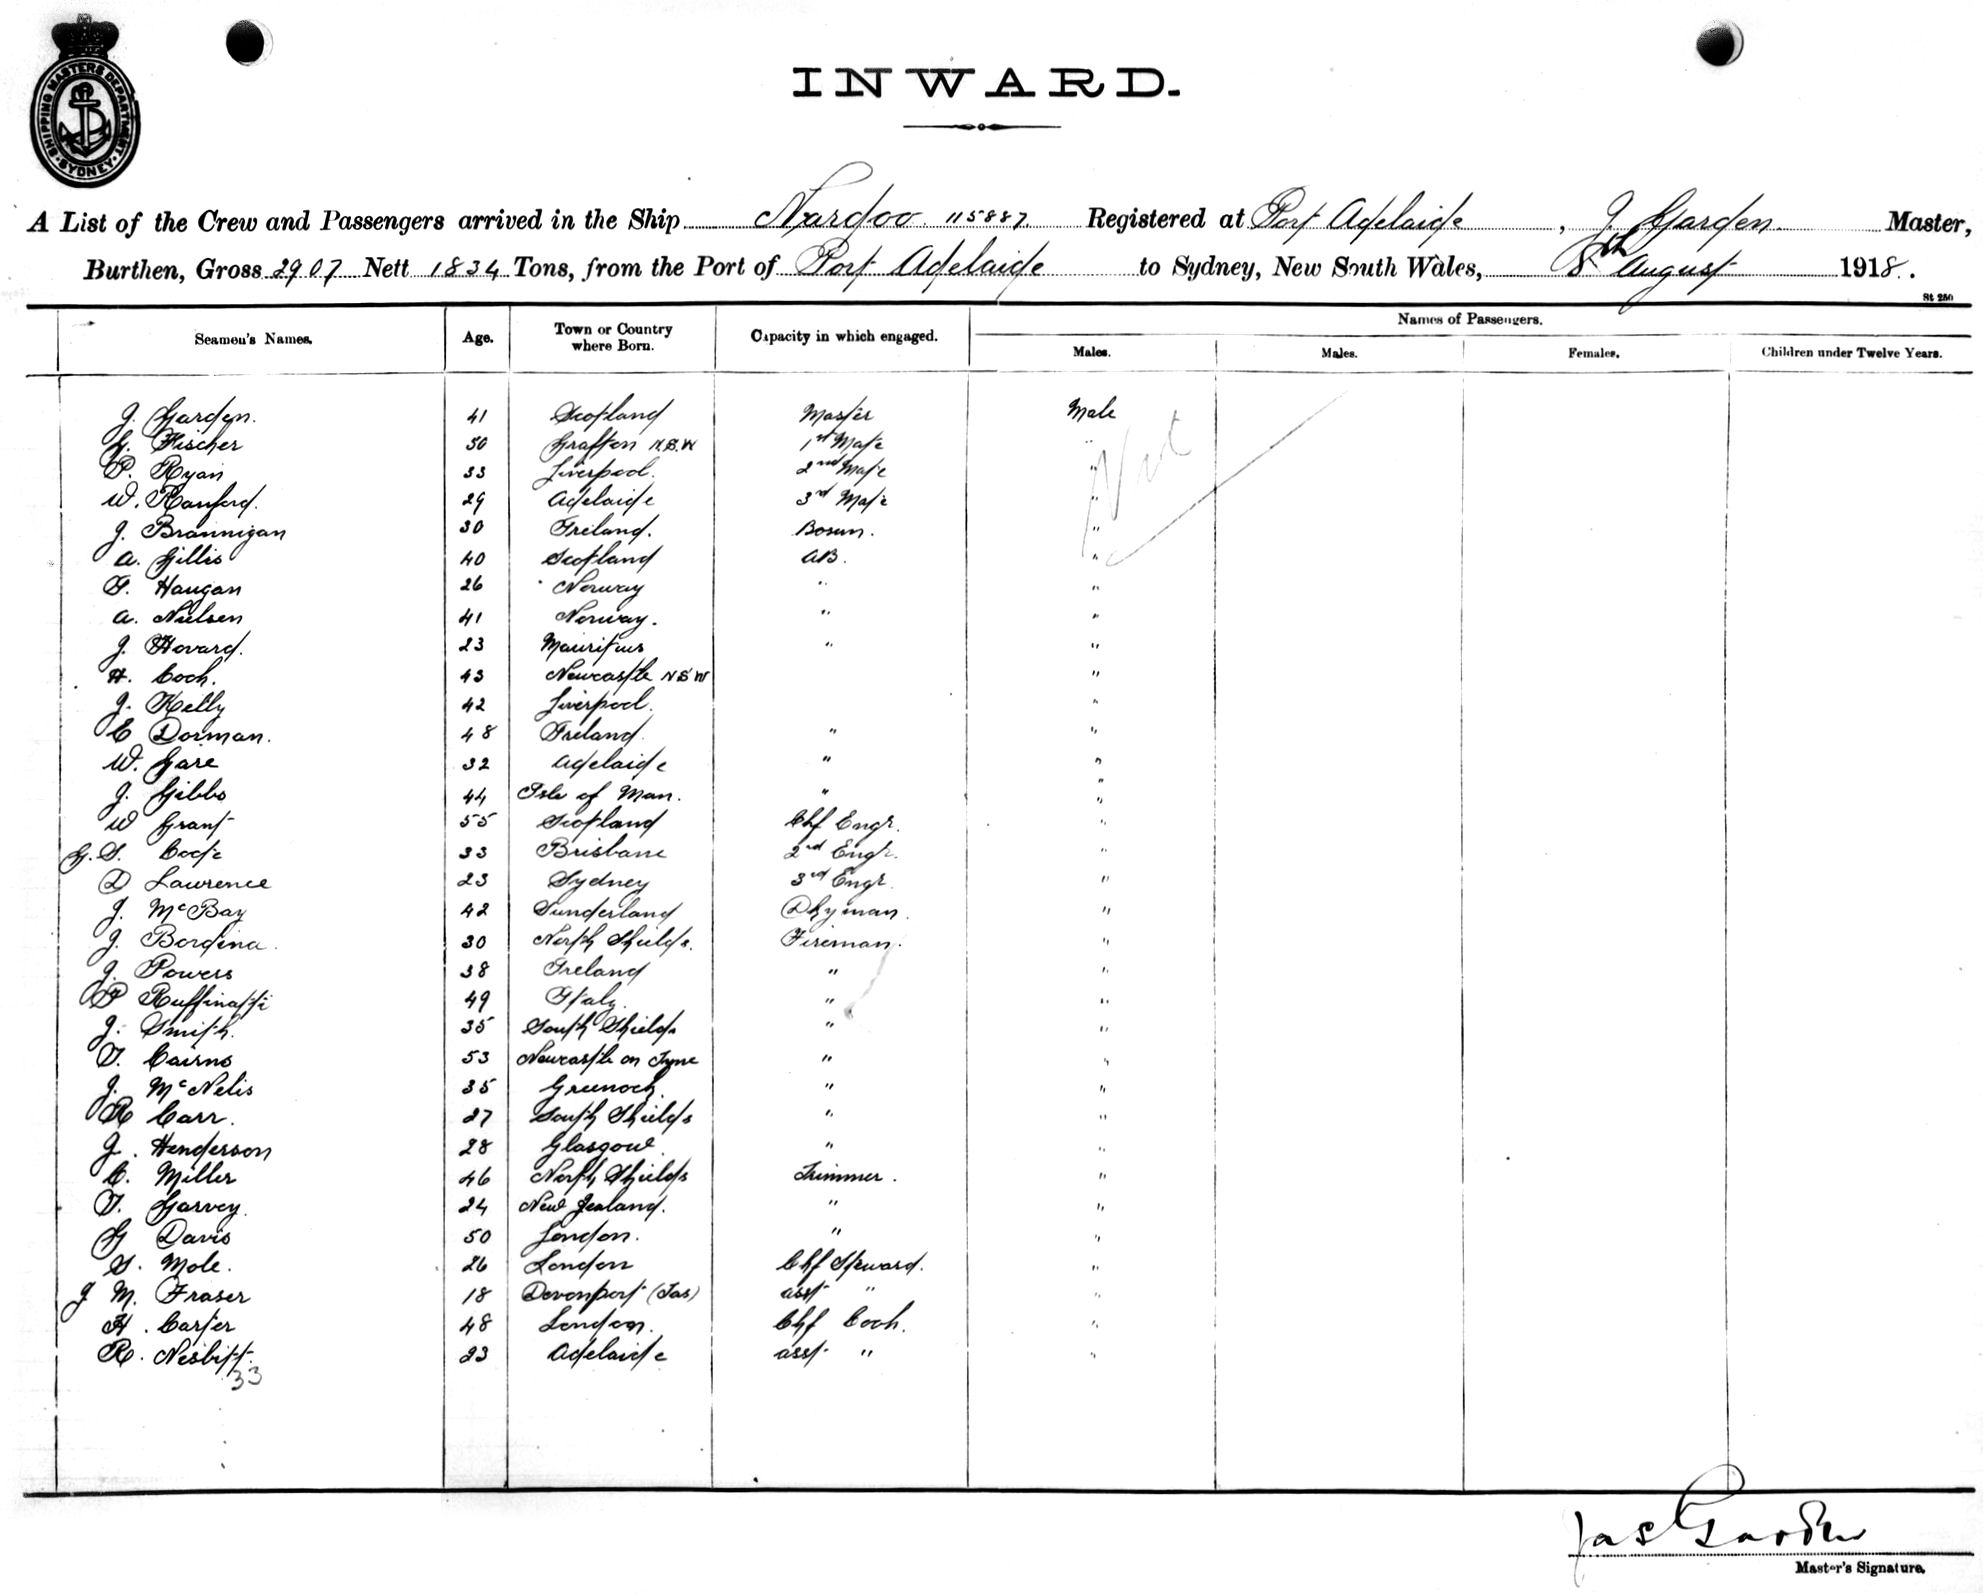 SHIPPING MASTERS DEPARTMENT
SYDNEY
INWARD.
A List of the Crew and Passengers arrived in the Ship Nardoo 115887. Registered at Port Adelaide, J. Garden. Master,
Burthen, Gross 2907 Nett 1834 Tons, from the Port of Port Adelaide to Sydney, New South Wales, 8th August 1918.
St 250
Seamen's Names. Age. Town or Country where Born. Capacity in which engaged. Names of Passengers.
Males. Males. Females. Children under Twelve Years.
J. Garden. 41 Scotland Master Male
G. Fischer 50 Grafton N.S.W 1st Mate "
P. Ryan 33 Liverpool. 2nd Mate "
W. Ranford. 29 Adelaide 3rd Mate "
J. Brannigan 30 Ireland. Bosun. "
A. Gillis 40 Scotland AB. "
F. Haugan 26 Norway " "
A. Nielsen 41 Norway. " "
J. Hovard. 23 Mauritius " "
H. Cock. 43 Newcastle NSW "
J. Kelly 42 Liverpool. "
E Dorman. 48 Ireland. " "
W. Gare 32 Adelaide " "
J. Gibbs 44 Isle of Man. " "
W Grant 55 Scotland Chf Engr. "
G. S. Cocte 33 Brisbane 2nd Engr. "
D Lawrence 23 Sydney 3rd Engr. "
J. McBay 42 Sunderland Dkyman. "
J. Bordina. 30 North Shields. Fireman. "
J. Powers 38 Ireland " "
P Ruffinatti 49 Italy. " "
J. Smith. 35 South Shields " "
T. Cairns 53 Newcastle on Tyne " "
J. McNelis 35 Greenock. " "
R Carr. 27 South Shields " "
J. Henderson 28 Glasgow. " "
C. Miller 46 North Shields Trimmer. "
T. Garvey. 24 New Zealand. " "
G Davis 50 London. " "
S. Mole. 26 London Chf Steward. "
J M. Fraser 18 Devonport (Tas) asst " "
H. Carter 48 London. Chf Cook. "
R. Nesbitt. 23 Adelaide asst " "
33
Jas Garden
Master's Signature.